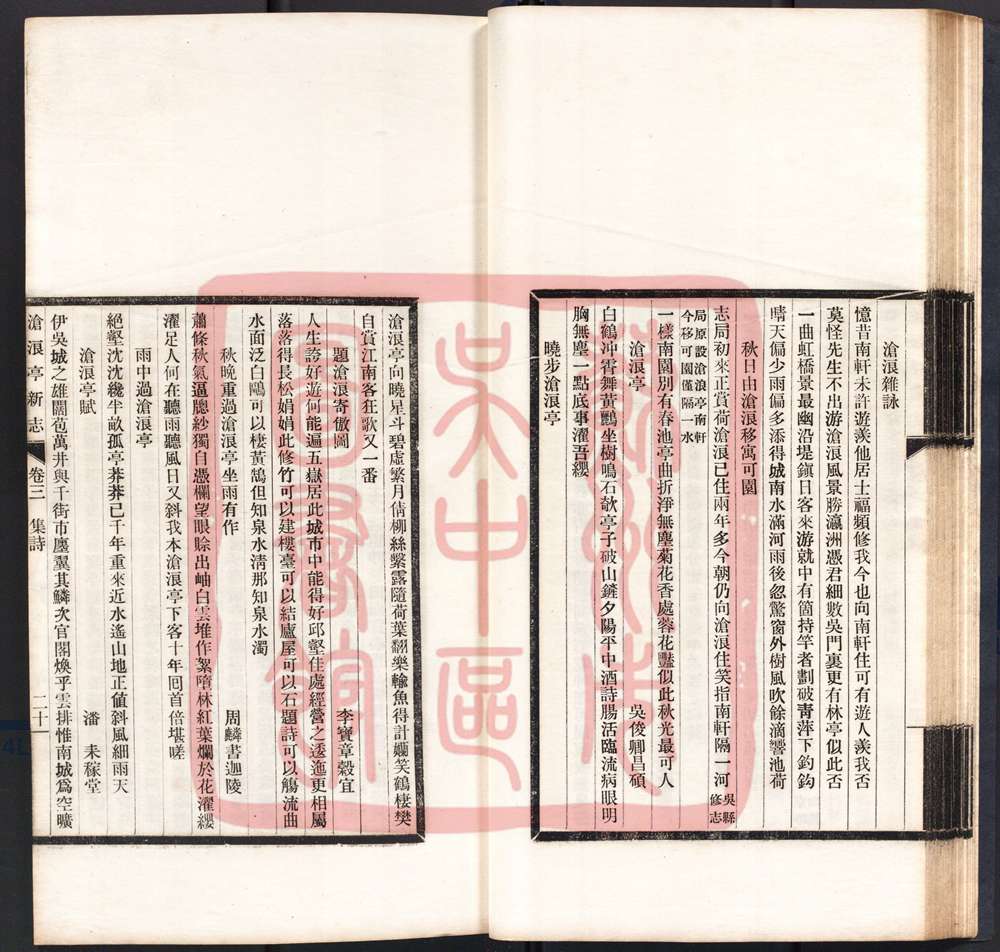 滄浪雜詠
憶昔南軒未許遊羨他居士福頻修我今也向南軒住可有遊人羨我否
莫怪先生不出游滄浪風景勝瀛洲憑君細數吳門裏更有林亭似此否
一曲虹橋景最幽沿堤鎮日客來游就中有箇持竿者劃破靑萍下釣鈎
晴天偏少雨偏多添得城南水滿河雨後忽驚窗外樹風吹餘滴響池荷
秋日由滄浪移寓可園
志局初來正賞荷滄浪已住兩年多今朝仍向滄浪住笑指南軒隔一河吳縣修志
局原設滄浪亭南軒今移可園僅隔一水
一樣南園別有春池亭曲折淨無塵菊花香處蓉花豔似此秋光最可人
滄浪亭
吳俊卿昌碩
白鶴冲霄舞黃鸝坐樹鳴石欹亭子破山鏟夕陽平中酒詩腸活臨流病眼明
胸無塵一點底事濯吾纓
曉步滄浪亭
滄浪亭向曉星斗碧虛繁月倩柳絲繫露隨荷葉翻樂輸魚得計孏笑鶴棲樊
自賞江南客狂歌又一番
題滄浪寄傲圖
李寶章穀宜
人生誇好遊何能遍五嶽居此城市中能得好邱壑佳處經營之逶迤更相屬
落落得長松娟娟此修竹可以建樓臺可以結廬屋可以石題詩可以觴流曲
水面泛白鷗可以棲黃鵠但知泉水淸那知泉水濁
秋晚重過滄浪亭坐雨有作
周麟書迦陵
蕭條秋氣逼牕紗獨自憑欄望眼賒出岫白雲堆作絮隋林紅葉爛於花濯纓
濯足人何在聽雨聽風日又斜我本滄浪亭下客十年回首倍堪嗟
雨中過滄浪亭
絕壑沈沈纔半畝孤亭莽莽已千年重來近水遙山地正値斜風細雨天
滄浪亭賦
潘耒稼堂
伊吳城之雄闊苞萬井與千街市廛翼其鱗次官閣煥乎雲排惟南城爲空曠
滄浪亭新志
卷三
集詩
二十
蘇州市吳中區圖書館